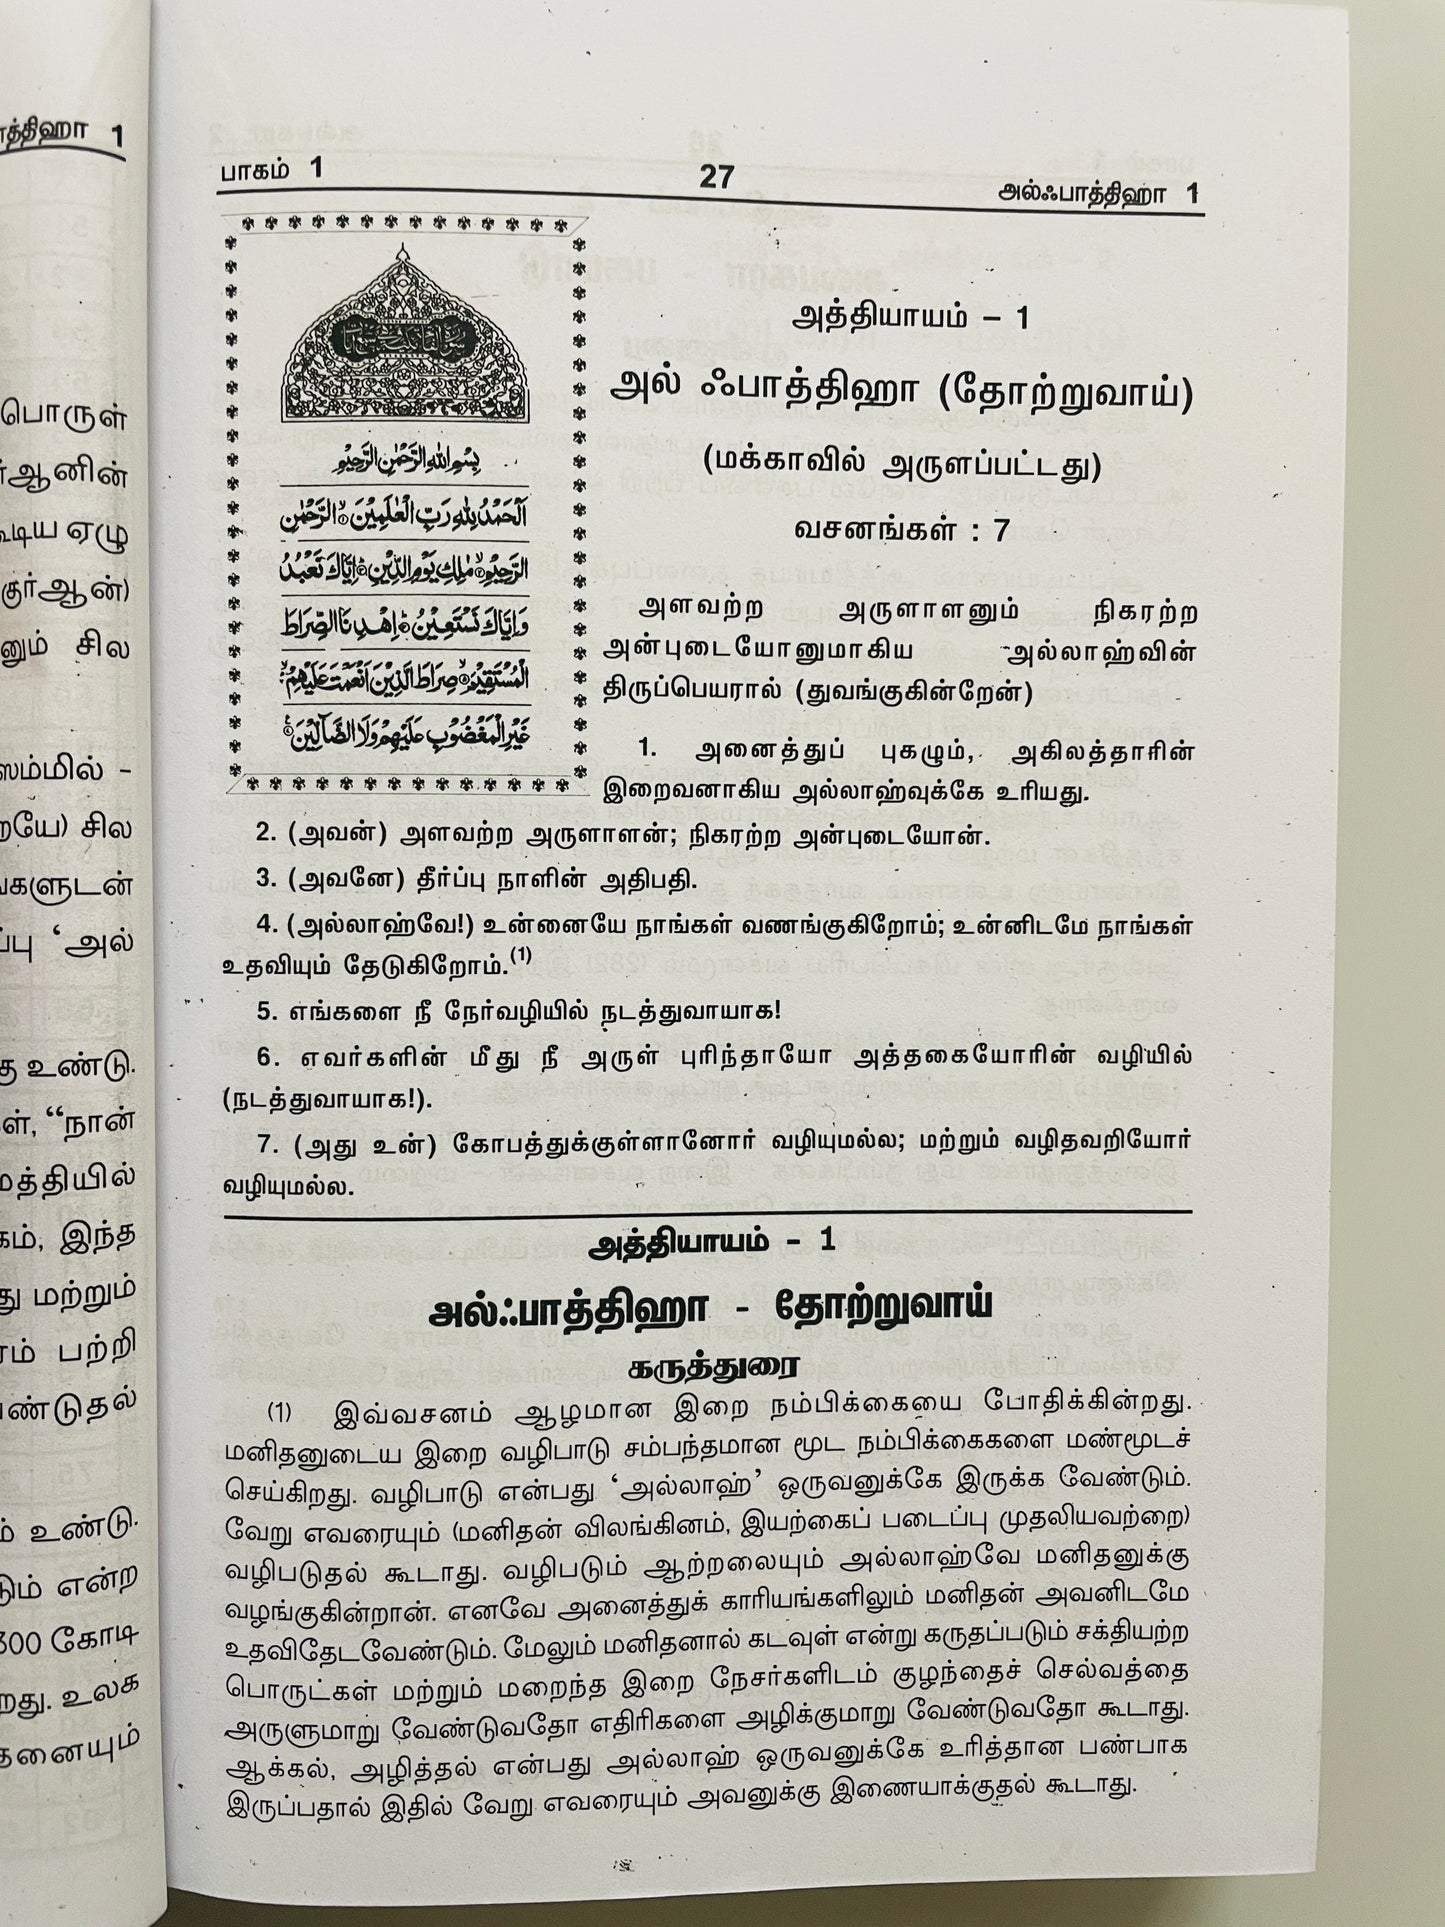 ாத்திஹா 1
பொருள்
ர்ஆனின்
கூடிய ஏழு
குர்ஆன்)
னும் சில
ஸம்மில் -
றையே) சில
ங்களுடன்
ப்பு ‘அல்
கு உண்டு.
ள், “நான்
மத்தியில்
கம், இந்த
து மற்றும்
ரம் பற்றி
ண்டுதல்
ம் உண்டு.
டும் என்ற
300 கோடி
றது. உலக
தனையும்
பாகம் 1 27 அல்ஃபாத்திஹா 1
بِسْمِ اللهِ الرَّحْمٰنِ الرَّحِيْمِ
اَلْحَمْدُ لِلّٰهِ رَبِّ الْعٰلَمِيْنَ ۙ۱ الرَّحْمٰنِ
الرَّحِيْمِ ۙ۲ مٰلِكِ يَوْمِ الدِّيْنِ ؕ۳ اِيَّاكَ نَعْبُدُ
وَاِيَّاكَ نَسْتَعِيْنُ ؕ۴ اِهْدِنَا الصِّرَاطَ
الْمُسْتَقِيْمَ ۙ۵ صِرَاطَ الَّذِيْنَ اَنْعَمْتَ عَلَيْهِمْ ۙ۶
غَيْرِ الْمَغْضُوْبِ عَلَيْهِمْ وَلَا الضَّآلِّيْنَ ۷
அத்தியாயம் – 1
அல் ஃபாத்திஹா (தோற்றுவாய்)
(மக்காவில் அருளப்பட்டது)
வசனங்கள் : 7
அளவற்ற அருளாளனும் நிகரற்ற
அன்புடையோனுமாகிய அல்லாஹ்வின்
திருப்பெயரால் (துவங்குகின்றேன்)
1. அனைத்துப் புகழும், அகிலத்தாரின்
இறைவனாகிய அல்லாஹ்வுக்கே உரியது.
2. (அவன்) அளவற்ற அருளாளன்; நிகரற்ற அன்புடையோன்.
3. (அவனே) தீர்ப்பு நாளின் அதிபதி.
4. (அல்லாஹ்வே!) உன்னையே நாங்கள் வணங்குகிறோம்; உன்னிடமே நாங்கள்
உதவியும் தேடுகிறோம்.(1)
5. எங்களை நீ நேர்வழியில் நடத்துவாயாக!
6. எவர்களின் மீது நீ அருள் புரிந்தாயோ அத்தகையோரின் வழியில்
(நடத்துவாயாக!).
7. (அது உன்) கோபத்துக்குள்ளானோர் வழியுமல்ல; மற்றும் வழிதவறியோர்
வழியுமல்ல.
அத்தியாயம் - 1
அல்ஃபாத்திஹா - தோற்றுவாய்
கருத்துரை
(1) இவ்வசனம் ஆழமான இறை நம்பிக்கையை போதிக்கின்றது.
மனிதனுடைய இறை வழிபாடு சம்பந்தமான மூட நம்பிக்கைகளை மண்மூடச்
செய்கிறது. வழிபாடு என்பது ‘அல்லாஹ்’ ஒருவனுக்கே இருக்க வேண்டும்.
வேறு எவரையும் (மனிதன் விலங்கினம், இயற்கைப் படைப்பு முதலியவற்றை)
வழிபடுதல் கூடாது. வழிபடும் ஆற்றலையும் அல்லாஹ்வே மனிதனுக்கு
வழங்குகின்றான். எனவே அனைத்துக் காரியங்களிலும் மனிதன் அவனிடமே
உதவிதேடவேண்டும். மேலும் மனிதனால் கடவுள் என்று கருதப்படும் சக்தியற்ற
பொருட்கள் மற்றும் மறைந்த இறை நேசர்களிடம் குழந்தைச் செல்வத்தை
அருளுமாறு வேண்டுவதோ எதிரிகளை அழிக்குமாறு வேண்டுவதோ கூடாது.
ஆக்கல், அழித்தல் என்பது அல்லாஹ் ஒருவனுக்கே உரித்தான பண்பாக
இருப்பதால் இதில் வேறு எவரையும் அவனுக்கு இணையாக்குதல் கூடாது.